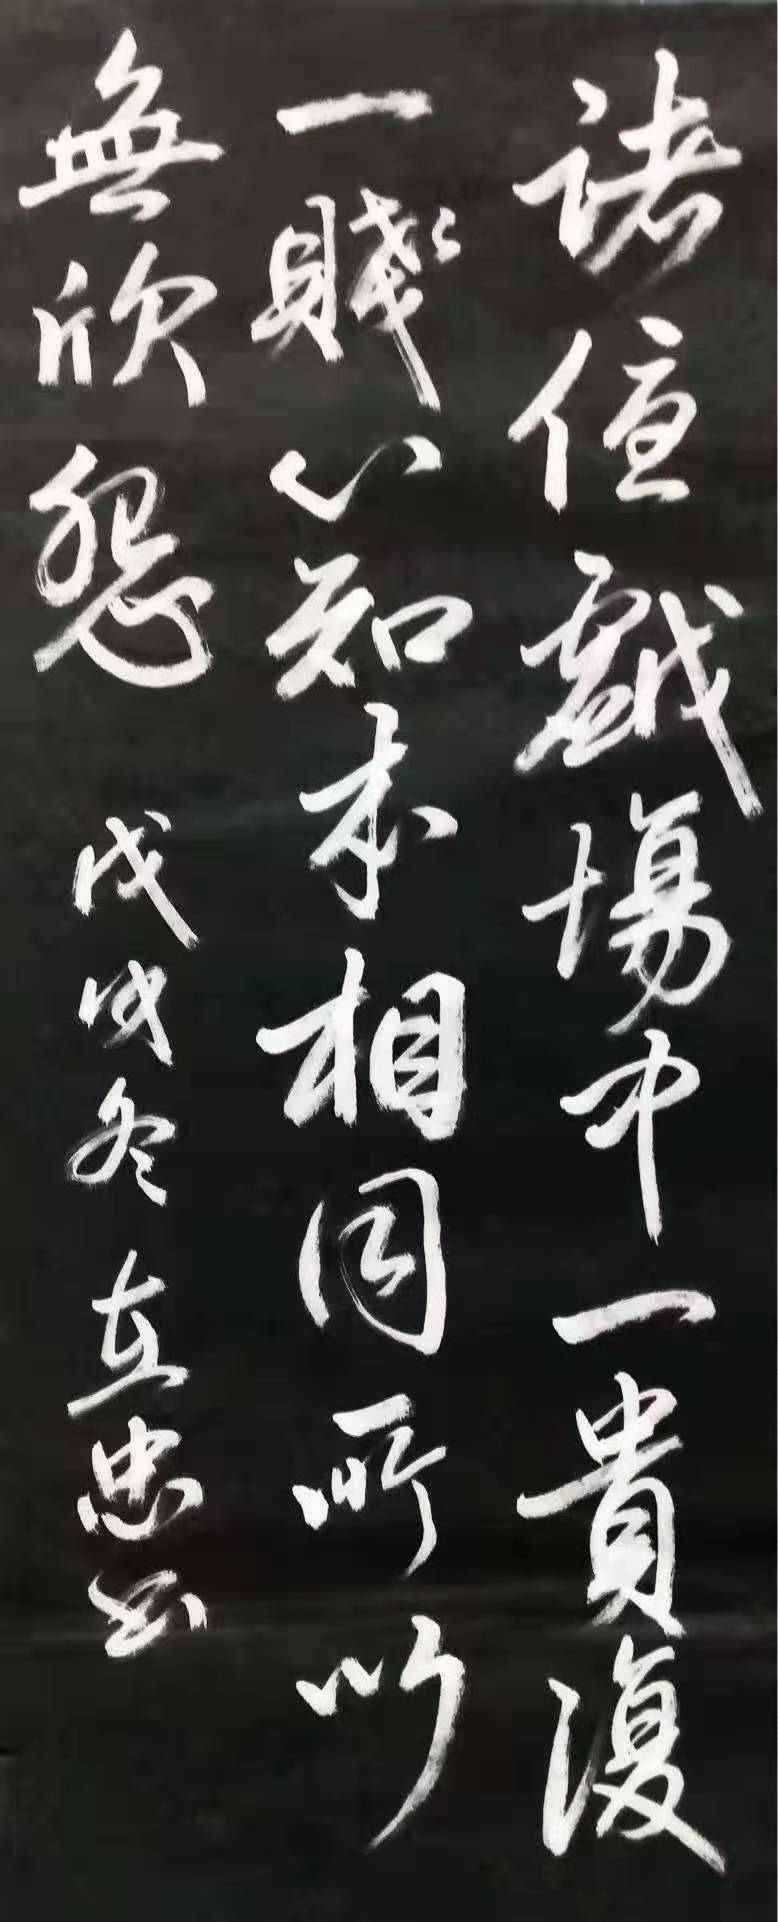 諸優戲場中一貴復
一賤心知本相同所以
無欣怨 戊戌冬 左忠书